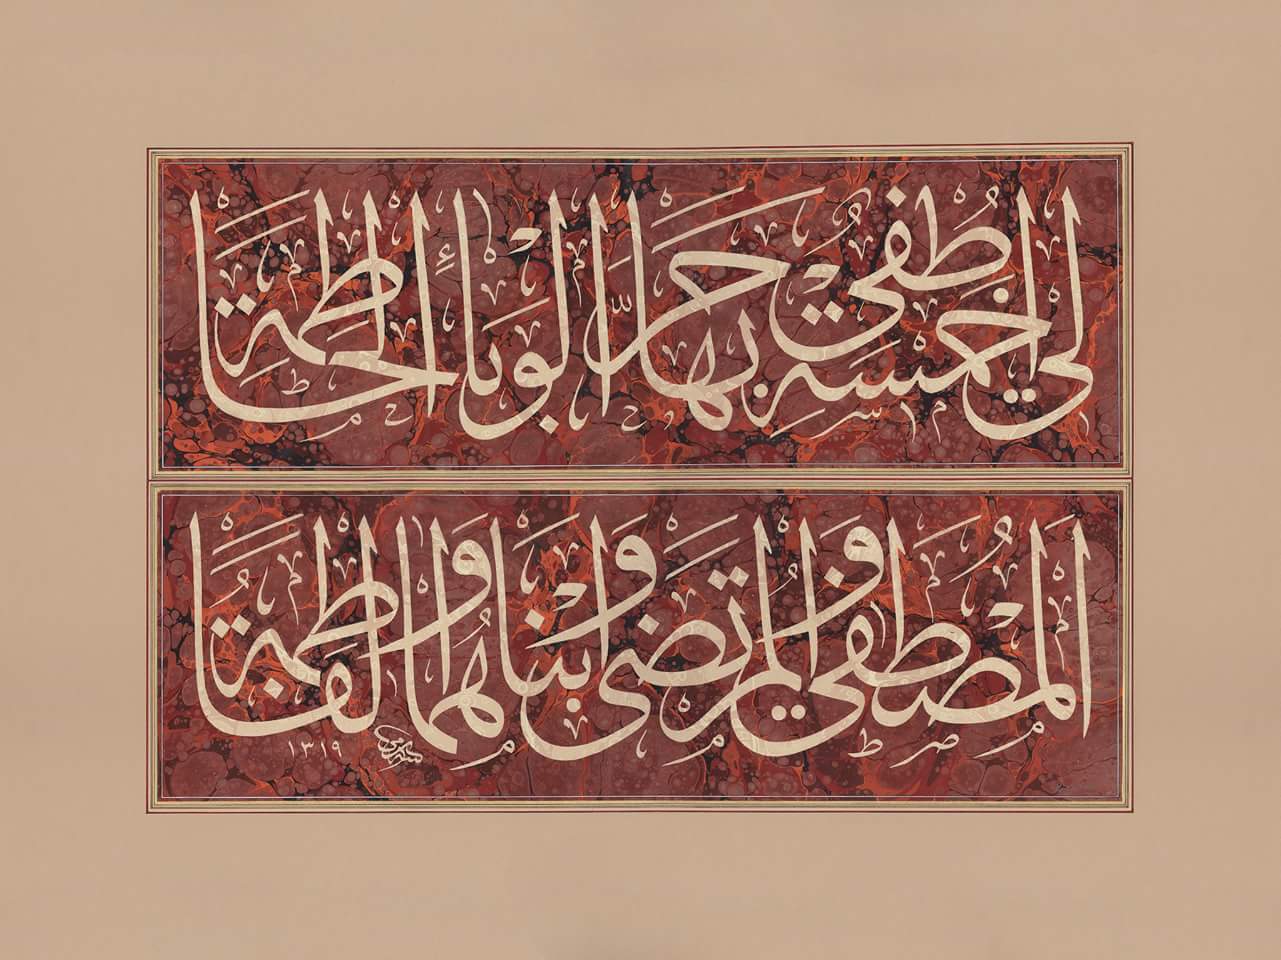 لي خمسة أطفي بها حر الوباء الحاطمة
المصطفى والمرتضى وابناهما والفاطمة
١٣١٩